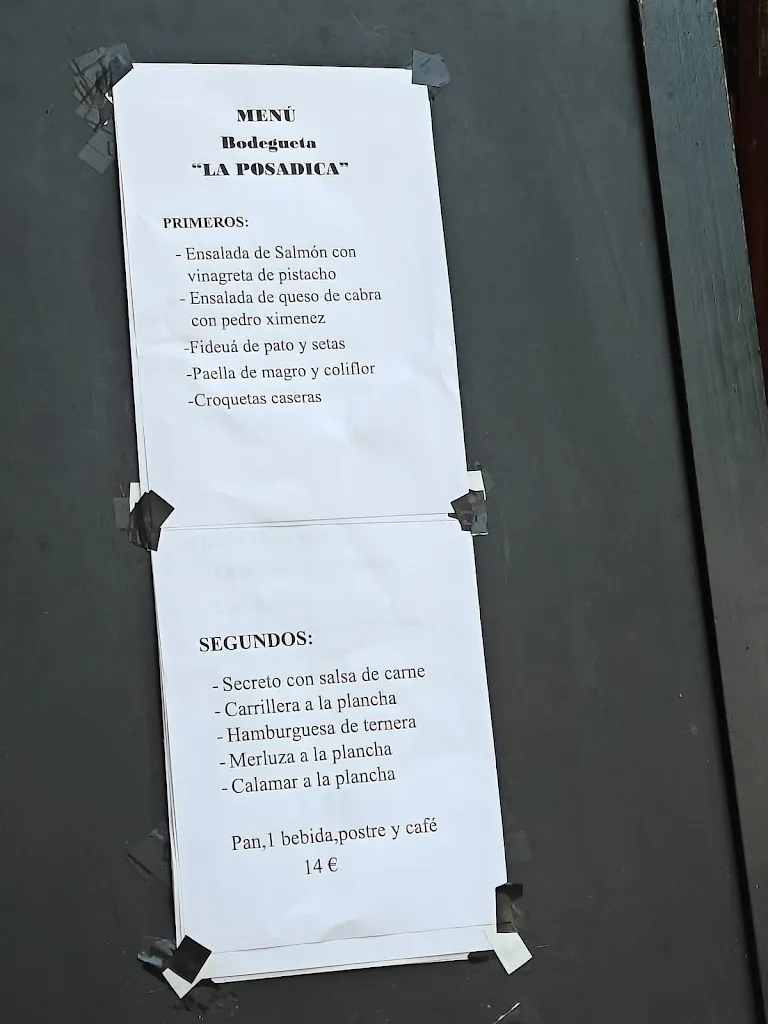 MENÚ
Bodegueta
“LA POSADICA”
PRIMEROS:
- Ensalada de Salmón con
vinagreta de pistacho
- Ensalada de queso de cabra
con pedro ximenez
-Fideuá de pato y setas
-Paella de magro y coliflor
-Croquetas caseras
SEGUNDOS:
- Secreto con salsa de carne
- Carrillera a la plancha
- Hamburguesa de ternera
- Merluza a la plancha
- Calamar a la plancha
Pan,1 bebida,postre y café
14 €